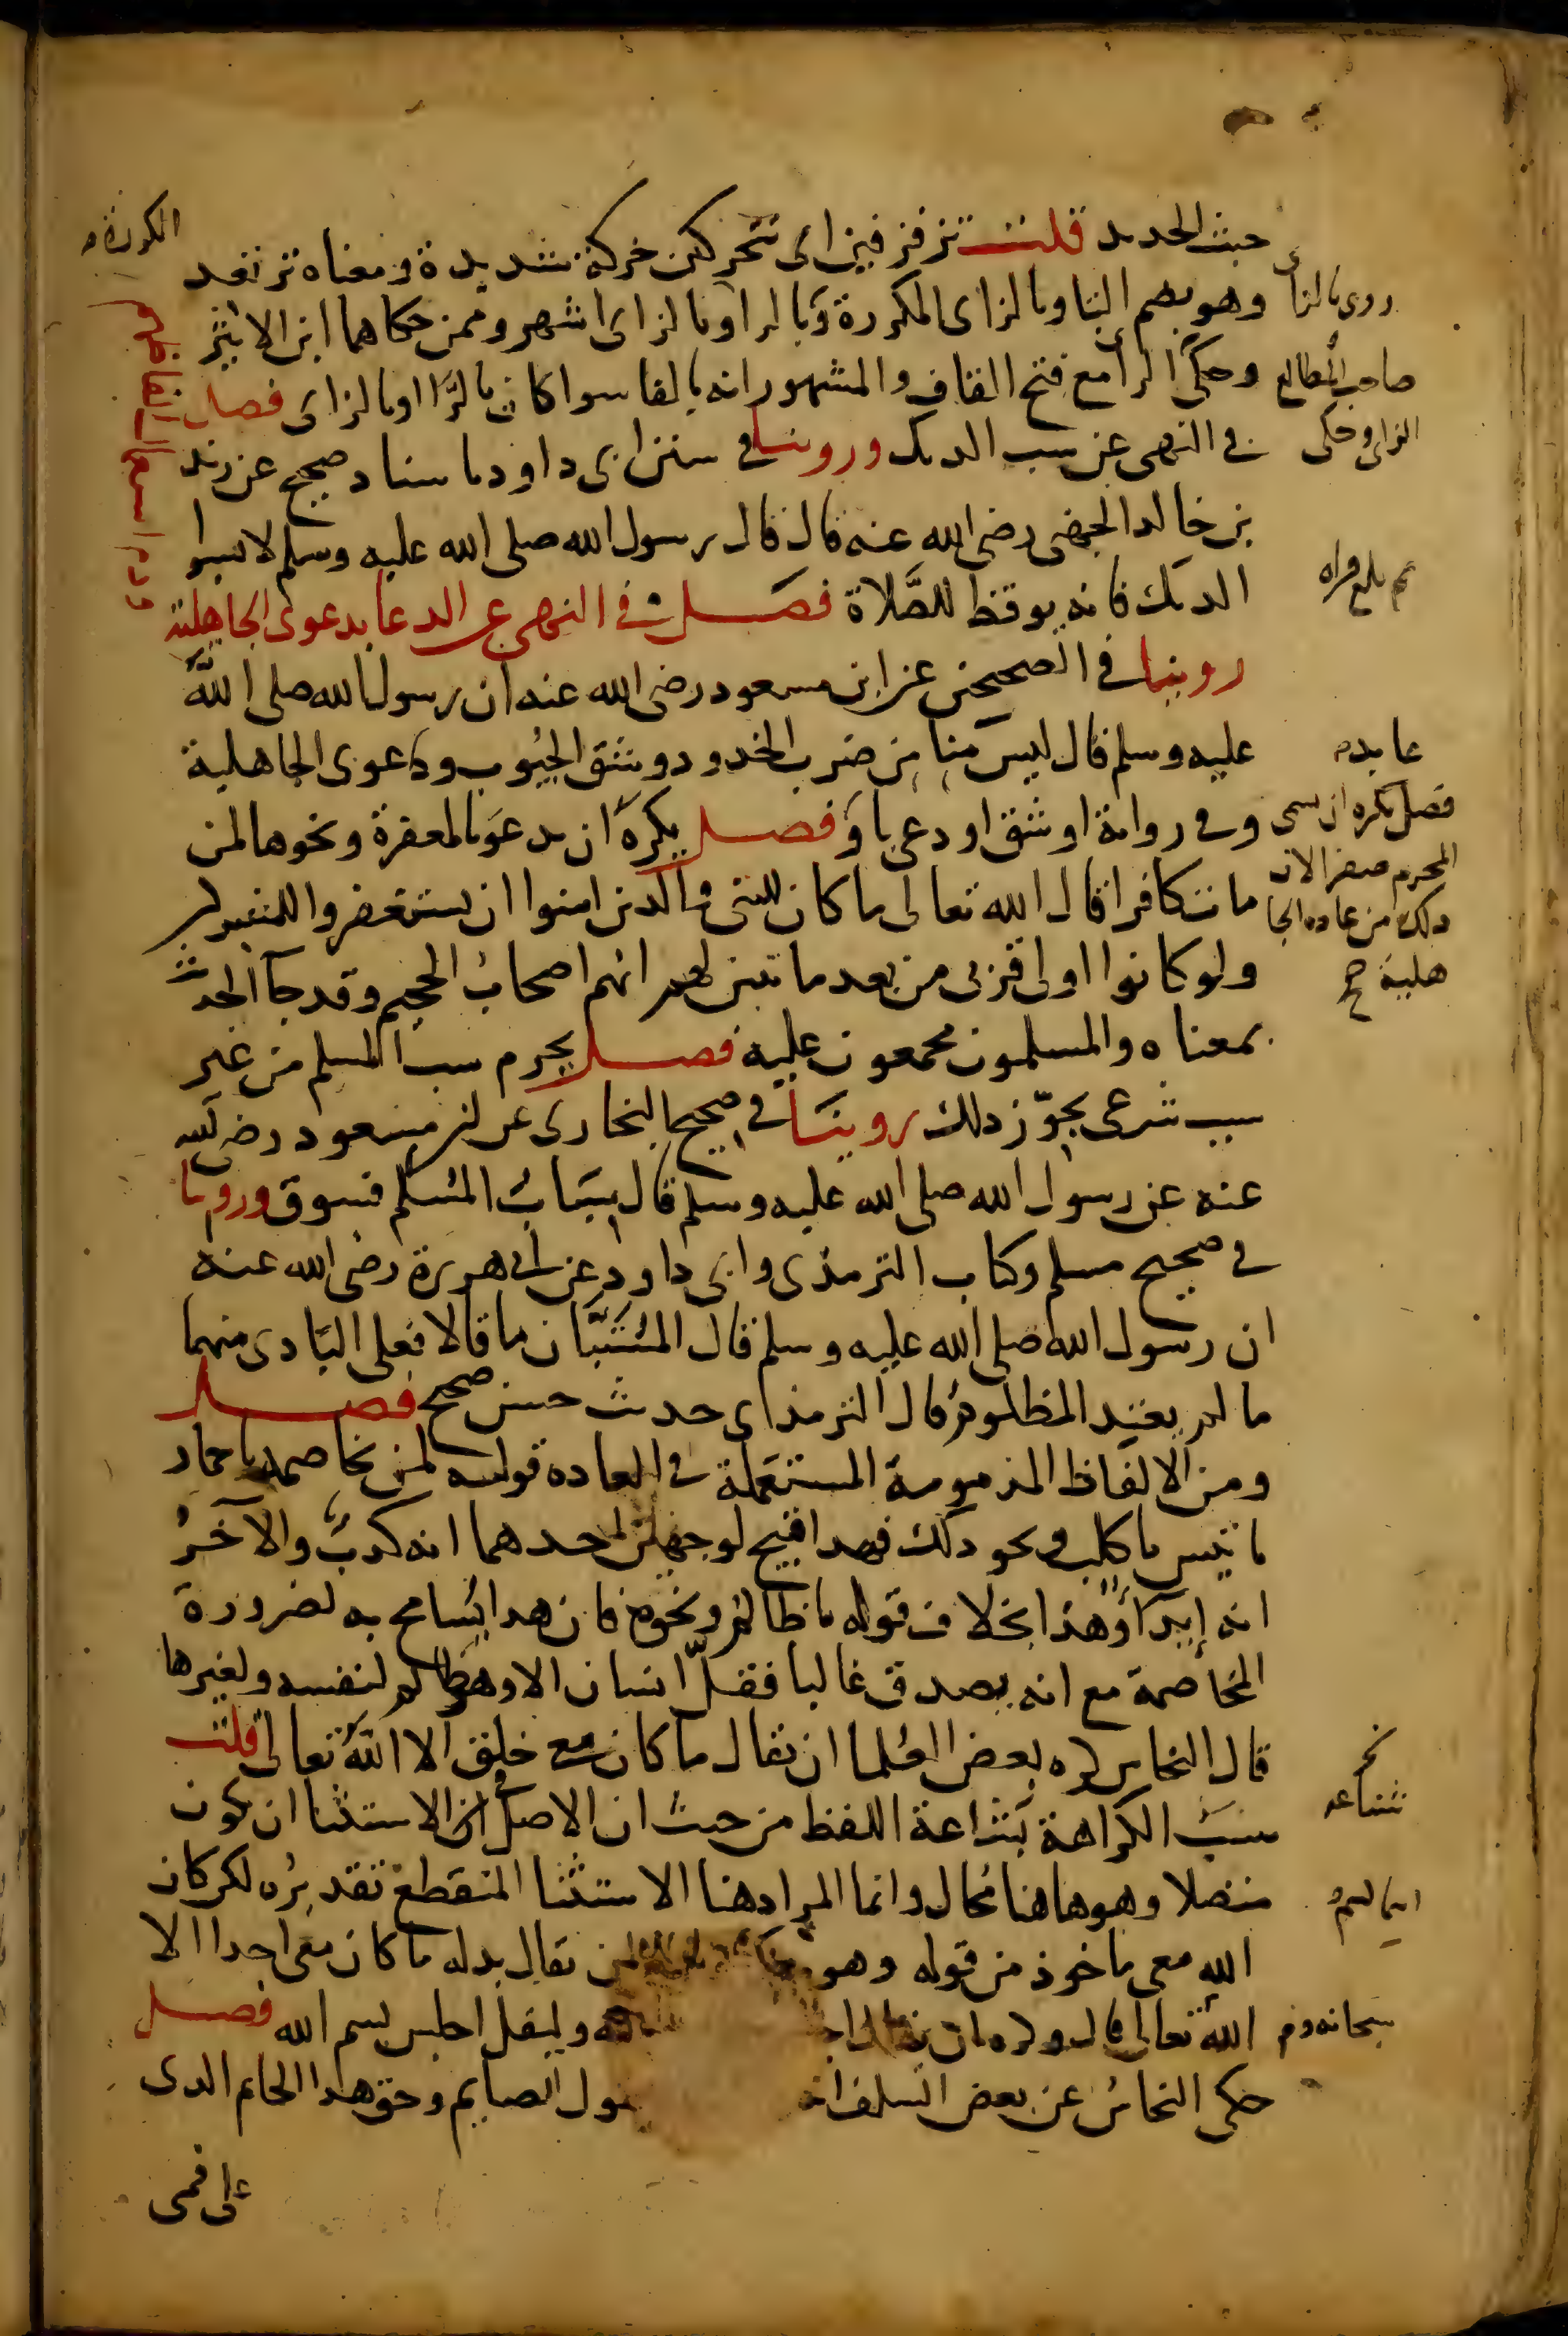 خبث الحديد قلت تزفزفين اى تتحركين حركة شديدة ومعناه ترتعد
وهو بضم التا وبالزاى المكررة وبالرا وبالزاى اشهر وممن حكاهما ابن الاثير
وحكى الرا مع فتح القاف والمشهور انه بالفا سوا كان بالرا او بالزاى فصل
فى النهى عن سب الديك وروينا فى سنن ابى داود باسناد صحيح عن زيد
بن خالد الجهنى رضى الله عنه قال قال رسول الله صلى الله عليه وسلم لا تسبوا
الديك فانه يوقظ للصلاة فصل فى النهى عن الدعا بدعوى الجاهلية
روينا فى الصحيحين عن ابن مسعود رضى الله عنه ان رسول الله صلى الله
عليه وسلم قال ليس منا من ضرب الخدود وشق الجيوب ودعوى الجاهلية
وفى رواية او شق او دعى باو فصل يكره ان يدعو بالمغفرة ونحوها لمن
مات كافرا قال الله تعالى ما كان للنبى والذين امنوا ان يستغفروا للمشركين
ولو كانوا اولى قربى من بعد ما تبين لهم انهم اصحاب الجحيم وقد جا الحديث
بمعناه والمسلمون مجمعون عليه فصل يحرم سب المسلم من غير
سبب شرعى يجوّز ذلك روينا فى صحيح البخارى عن ابن مسعود رضى الله
عنه عن رسول الله صلى الله عليه وسلم قال سباب المسلم فسوق وروينا
فى صحيح مسلم وكتاب الترمذى وابى داود عن ابى هريرة رضى الله عنه
ان رسول الله صلى الله عليه وسلم قال المستبّان ما قالا فعلى البادى منهما
ما لم يعتد المظلوم قال الترمذى حديث حسن صحيح فصل
ومن الالفاظ المذمومة المستعملة فى العاده قوله لمن يخاصمه يا حمار
يا تيس يا كلب ونحو ذلك فهدا قبيح لوجهين احدهما انه كذب والآخر
انه إيذا وهذا بخلاف قوله يا ظالم ونحوه فان هدا يسامح به لضرورة
المخاصمة مع انه يصدق غالبا فقلّ انسان الا وهو ظالم لنفسه ولغيرها
قال النحاس كره بعض العلما ان يقال ما كان مع خلق الا الله تعالى قلت
سبب الكراهة بشاعة اللفظ من حيث ان الاصل فى الاستثنا ان يكون
متصلا وهو هاهنا محال وانما المراد هنا الاستثنا المنقطع تقديره لكن كان
الله معى ماخوذ من قوله وهو يقال بدله ما كان معى احدا الا
الله تعالى قال وكره ان يقال وليقل اجلس بسم الله فصل
حكى النحاس عن بعض السلف انه يقول الصايم وحق هدا الخاتم الدى
على فمى
روى بالزا
صاحب المطالع
الزاى وحكى
عا بدم
فصل يكره ان يسمى
المحرم صفر الان
ذلك من عاده الجا
هلية صح
شناعه
سبحانه وم